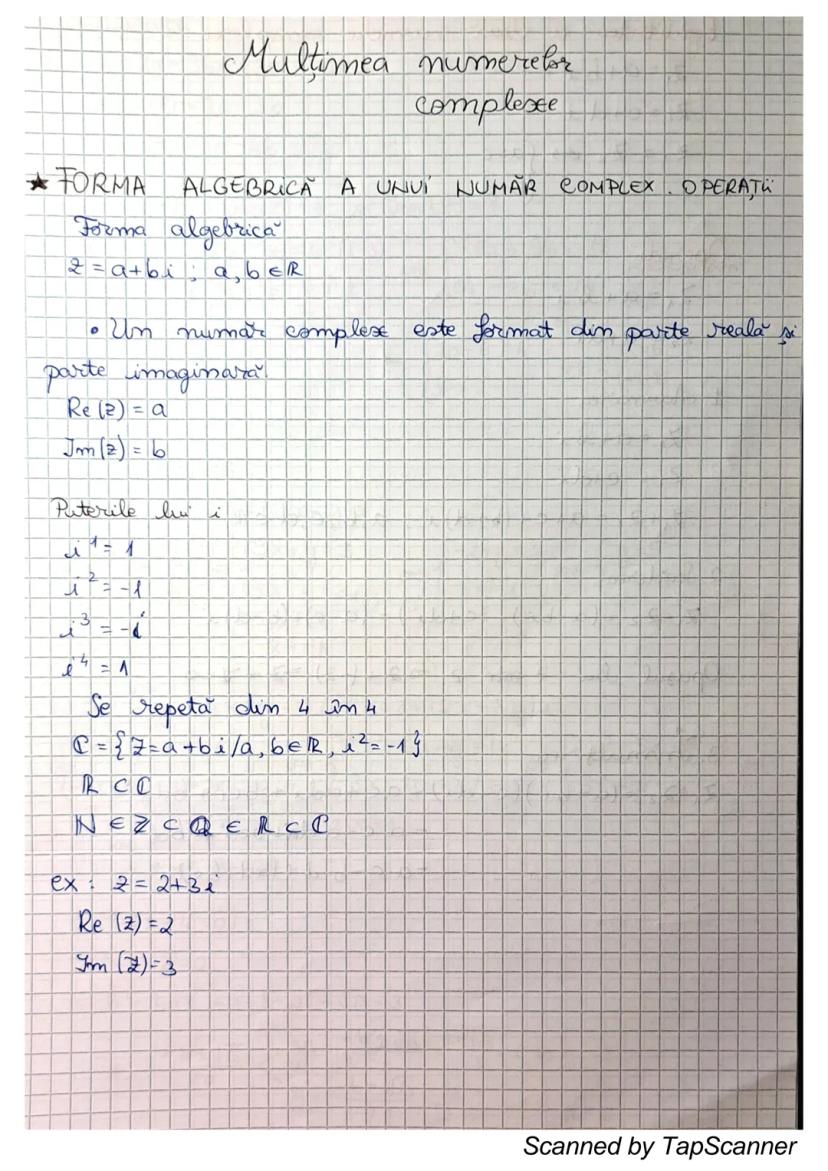 Mulțimea numerelor
complexe
★ FORMA ALGEBRICĂ A UNUI NUMĂR COMPLEX. OPERAȚII
Forma algebrică
z = a+bi ; a, b ∈ ℝ
• Un număr complex este format din parte reală și
parte imaginară.
Re(z) = a
Im(z) = b
Puterile lui i
i¹ = 1
i² = -1
i³ = -i
i⁴ = 1
Se repetă din 4 în 4
ℂ = {z=a+bi/a, b∈ℝ, i²= -1}
ℝ ⊂ ℂ
ℕ ∈ ℤ ⊂ ℚ ∈ ℝ ⊂ ℂ
ex : z = 2+3i
Re (z) = 2
Im (z) = 3
Scanned by TapScanner